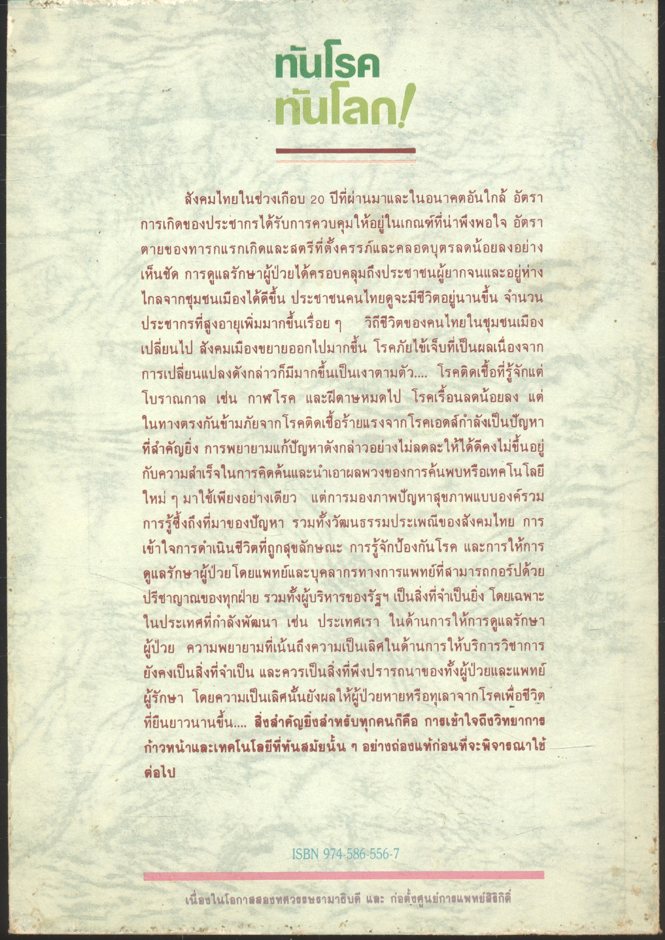 ทันโรค
ทันโลก!
สังคมไทยในช่วงเกือบ 20 ปีที่ผ่านมาและในอนาคตอันใกล้ อัตรา
การเกิดของประชากรได้รับการควบคุมให้อยู่ในเกณฑ์ที่น่าพึงพอใจ อัตรา
ตายของทารกแรกเกิดและสตรีที่ตั้งครรภ์และคลอดบุตรลดน้อยลงอย่าง
เห็นชัด การดูแลรักษาผู้ป่วยได้ครอบคลุมถึงประชาชนผู้ยากจนและอยู่ห่าง
ไกลจากชุมชนเมืองได้ดีขึ้น ประชาชนคนไทยดูจะมีชีวิตอยู่นานขึ้น จำนวน
ประชากรที่สูงอายุเพิ่มมากขึ้นเรื่อย ๆ วิถีชีวิตของคนไทยในชุมชนเมือง
เปลี่ยนไป สังคมเมืองขยายออกไปมากขึ้น โรคภัยไข้เจ็บที่เป็นผลเนื่องจาก
การเปลี่ยนแปลงดังกล่าวก็มีมากขึ้นเป็นเงาตามตัว.... โรคติดเชื้อที่รู้จักแต่
โบราณกาล เช่น กาฬโรค และฝีดาษหมดไป โรคเรื้อนลดน้อยลง แต่
ในทางตรงกันข้ามภัยจากโรคติดเชื้อร้ายแรงจากโรคเอดส์กำลังเป็นปัญหา
ที่สำคัญยิ่ง การพยายามแก้ปัญหาดังกล่าวอย่างไม่ลดละให้ได้ดีคงไม่ขึ้นอยู่
กับความสำเร็จในการคิดค้นและนำเอาผลพวงของการค้นพบหรือเทคโนโลยี
ใหม่ ๆ มาใช้เพียงอย่างเดียว แต่การมองภาพปัญหาสุขภาพแบบองค์รวม
การรู้ซึ้งถึงที่มาของปัญหา รวมทั้งวัฒนธรรมประเพณีของสังคมไทย การ
เข้าใจการดำเนินชีวิตที่ถูกสุขลักษณะ การรู้จักป้องกันโรค และการให้การ
ดูแลรักษาผู้ป่วยโดยแพทย์และบุคลากรทางการแพทย์ที่สามารถกอร์ปด้วย
ปรีชาญาณของทุกฝ่าย รวมทั้งผู้บริหารของรัฐฯ เป็นสิ่งที่จำเป็นยิ่ง โดยเฉพาะ
ในประเทศที่กำลังพัฒนา เช่น ประเทศเรา ในด้านการให้การดูแลรักษา
ผู้ป่วย ความพยายามที่เน้นถึงความเป็นเลิศในด้านการให้บริการวิชาการ
ยังคงเป็นสิ่งที่จำเป็น และควรเป็นสิ่งที่พึงปรารถนาของทั้งผู้ป่วยและแพทย์
ผู้รักษา โดยความเป็นเลิศนั้นยังผลให้ผู้ป่วยหายหรือทุเลาจากโรคเพื่อชีวิต
ที่ยืนยาวนานขึ้น.... สิ่งสำคัญยิ่งสำหรับทุกคนก็คือ การเข้าใจถึงวิทยาการ
ก้าวหน้าและเทคโนโลยีที่ทันสมัยนั้น ๆ อย่างถ่องแท้ก่อนที่จะพิจารณาใช้
ต่อไป
ISBN 974-586-556-7
เนื่องในโอกาสสองทศวรรษรามาธิบดี และ ก่อตั้งศูนย์การแพทย์สิริกิติ์